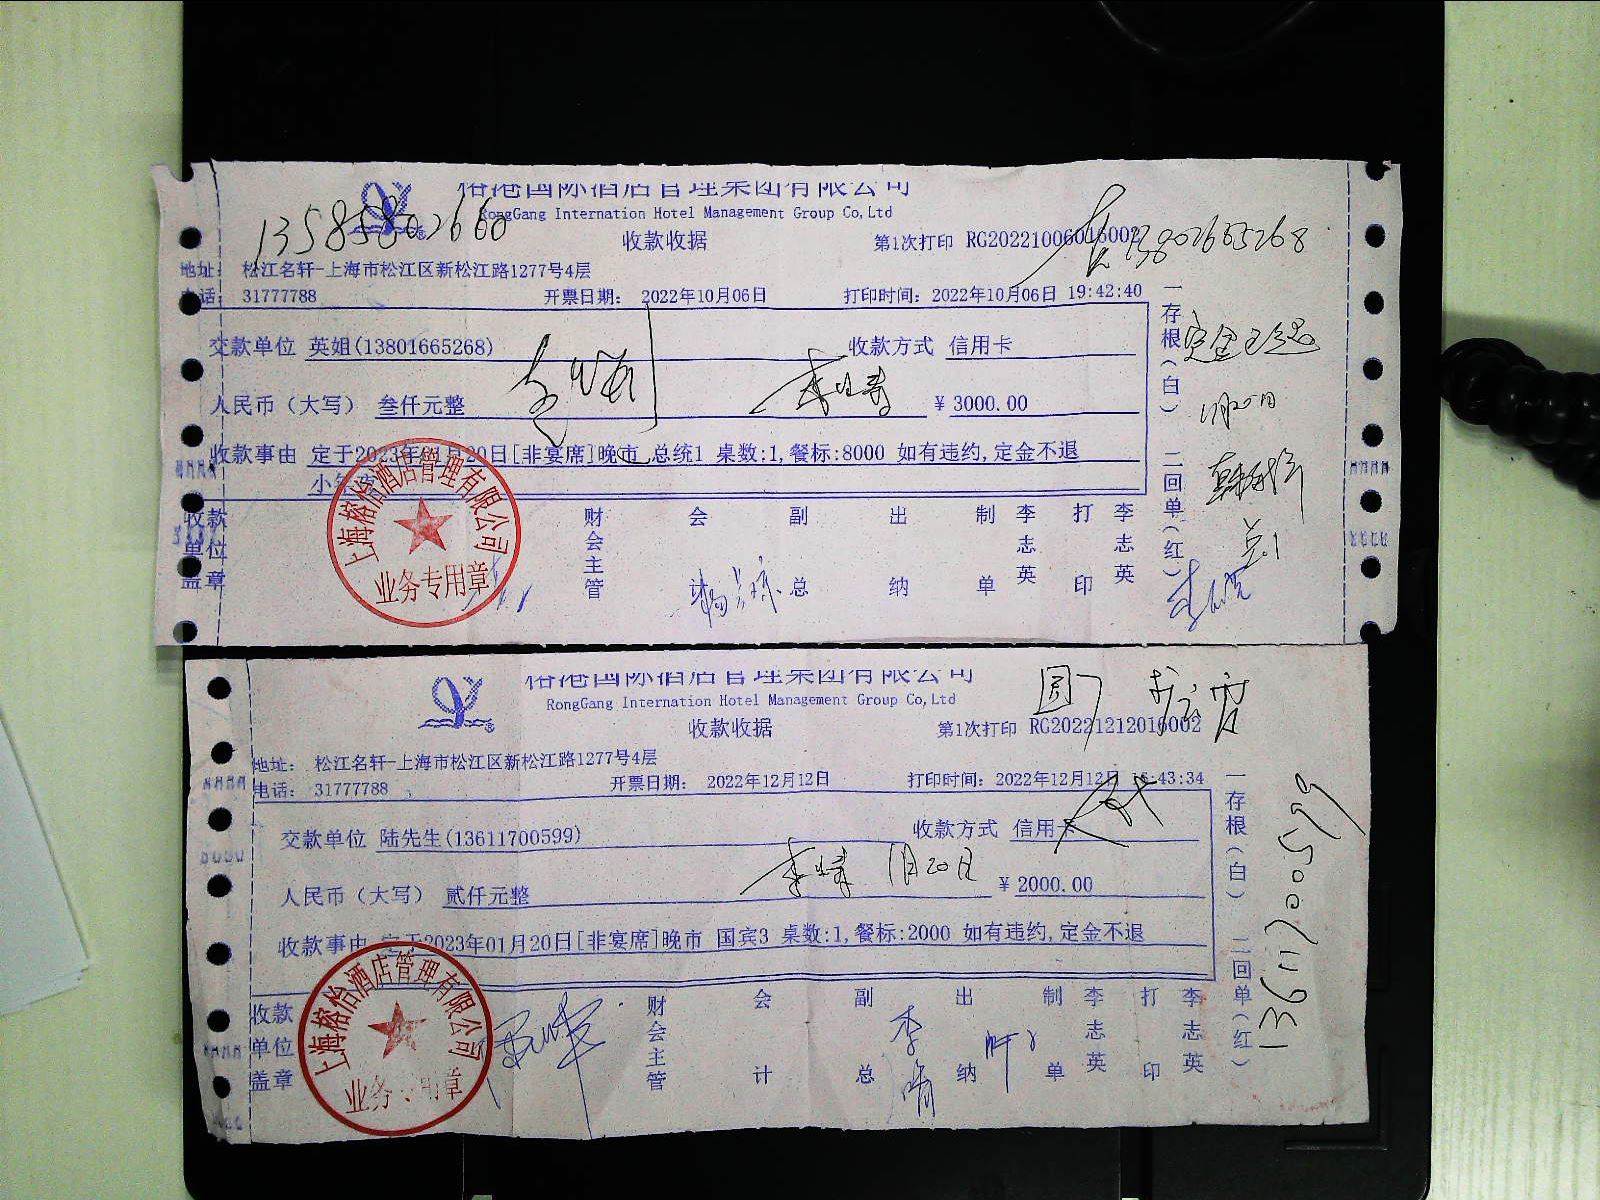 港国际酒店管理集团有限公司
RongGang Internation Hotel Management Group Co,Ltd
13585802660
收款收据
第1次打印 RG20221006016002
13802665268
地址: 松江名轩-上海市松江区新松江路1277号4层
电话: 31777788 开票日期: 2022年10月06日 打印时间: 2022年10月06日 19:42:40
交款单位 英姐(13801665268) 收款方式 信用卡
人民币(大写) 叁仟元整 ¥3000.00
收款事由 定于2023年01月20日[非宴席]晚市 总统1 桌数:1,餐标:8000 如有违约,定金不退
收款单位盖章 财会主管 会计 副总 出纳 制单 李志英 打印 李志英
一存根(白) 二回单(红)
1月20日
总1
上海榕怡酒店管理有限公司
业务专用章
港国际酒店管理集团有限公司
RongGang Internation Hotel Management Group Co,Ltd
收款收据
第1次打印 RG20221212016002
地址: 松江名轩-上海市松江区新松江路1277号4层
电话: 31777788 开票日期: 2022年12月12日 打印时间: 2022年12月12日 16:43:34
交款单位 陆先生(13611700599) 收款方式 信用卡
1月20日
人民币(大写) 贰仟元整 ¥2000.00
收款事由 定于2023年01月20日[非宴席]晚市 国宾3 桌数:1,餐标:2000 如有违约,定金不退
收款单位盖章 财会主管 会计 副总 出纳 制单 李志英 打印 李志英
一存根(白) 二回单(红)
13611700599
上海榕怡酒店管理有限公司
业务专用章